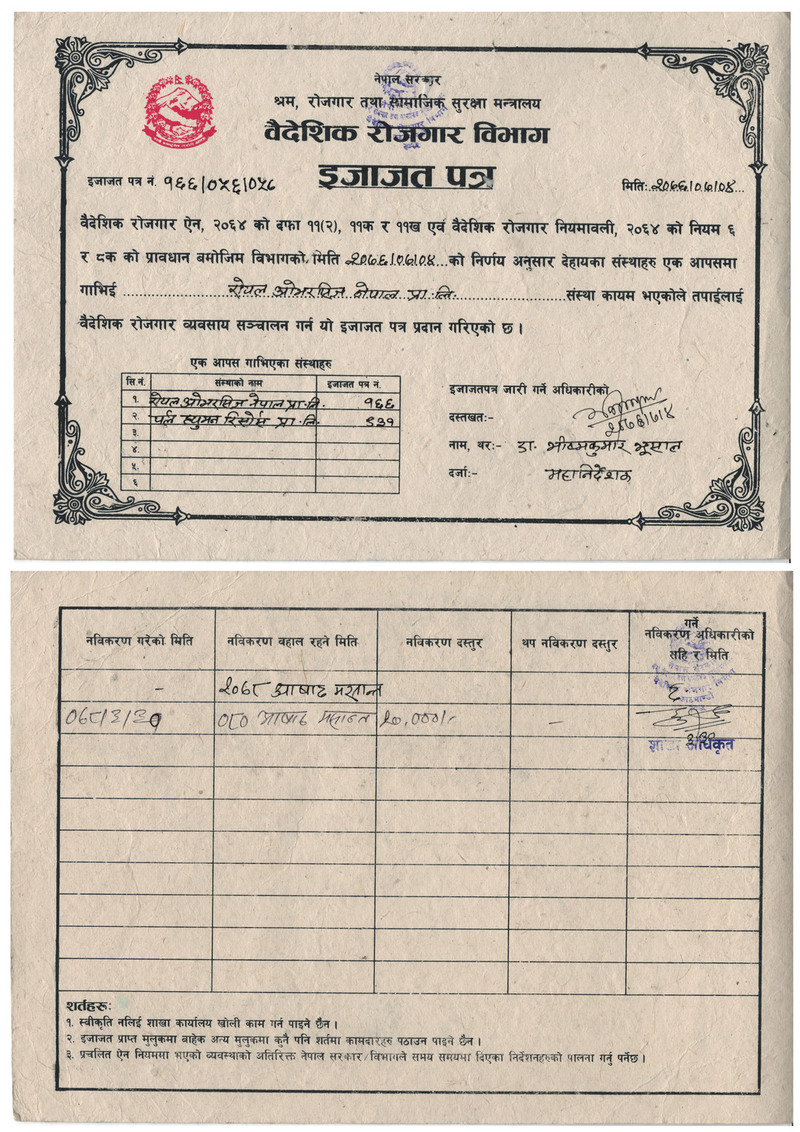 नेपाल सरकार
श्रम, रोजगार तथा सामाजिक सुरक्षा मन्त्रालय
वैदेशिक रोजगार विभाग
इजाजत पत्र
इजाजत पत्र नं. १६६/०५६/०५८ मितिः २०७६/०७/०४
वैदेशिक रोजगार ऐन, २०६४ को दफा ११(२), ११क र ११ख एवं वैदेशिक रोजगार नियमावली, २०६४ को नियम ६
र ८क को प्रावधान बमोजिम विभागको मिति २०७६/०७/०४ को निर्णय अनुसार देहायका संस्थाहरु एक आपसमा
गाभिई रोयल ओभरसिज नेपाल प्रा.लि. संस्था कायम भएकोले तपाईलाई
वैदेशिक रोजगार व्यवसाय सञ्चालन गर्न यो इजाजत पत्र प्रदान गरिएको छ ।
एक आपस गाभिएका संस्थाहरु
सि.नं. संस्थाको नाम इजाजत पत्र नं.
१. रोयल ओभरसिज नेपाल प्रा.लि. १६६
२. पर्ल ह्युमन रिसोर्स प्रा.लि. ९३१
३
४.
५.
६
इजाजतपत्र जारी गर्ने अधिकारीको
दस्तखतः-
२०७६/७/४
नाम, थरः- डा. भीष्मकुमार भूसाल
दर्जाः- महानिर्देशक
नविकरण गरेको मिति नविकरण वहाल रहने मिति नविकरण दस्तुर थप नविकरण दस्तुर गर्ने नविकरण अधिकारीको सहि र मिति
- २०७८ आषाढ मसान्त
०७८/३/३० ०८० आषाढ मसान्त २०,०००/- -
शाखा अधिकृत
शर्तहरुः
१. स्वीकृति नलिई शाखा कार्यालय खोली काम गर्न पाइने छैन ।
२. इजाजत प्राप्त मुलुकमा बाहेक अन्य मुलुकमा कुनै पनि शर्तमा कामदारहरु पठाउन पाइने छैन ।
३. प्रचलित ऐन नियममा भएको व्यवस्थाको अतिरिक्त नेपाल सरकार/विभागले समय समयमा दिएका निर्देशनहरुको पालना गर्नु पर्नेछ ।